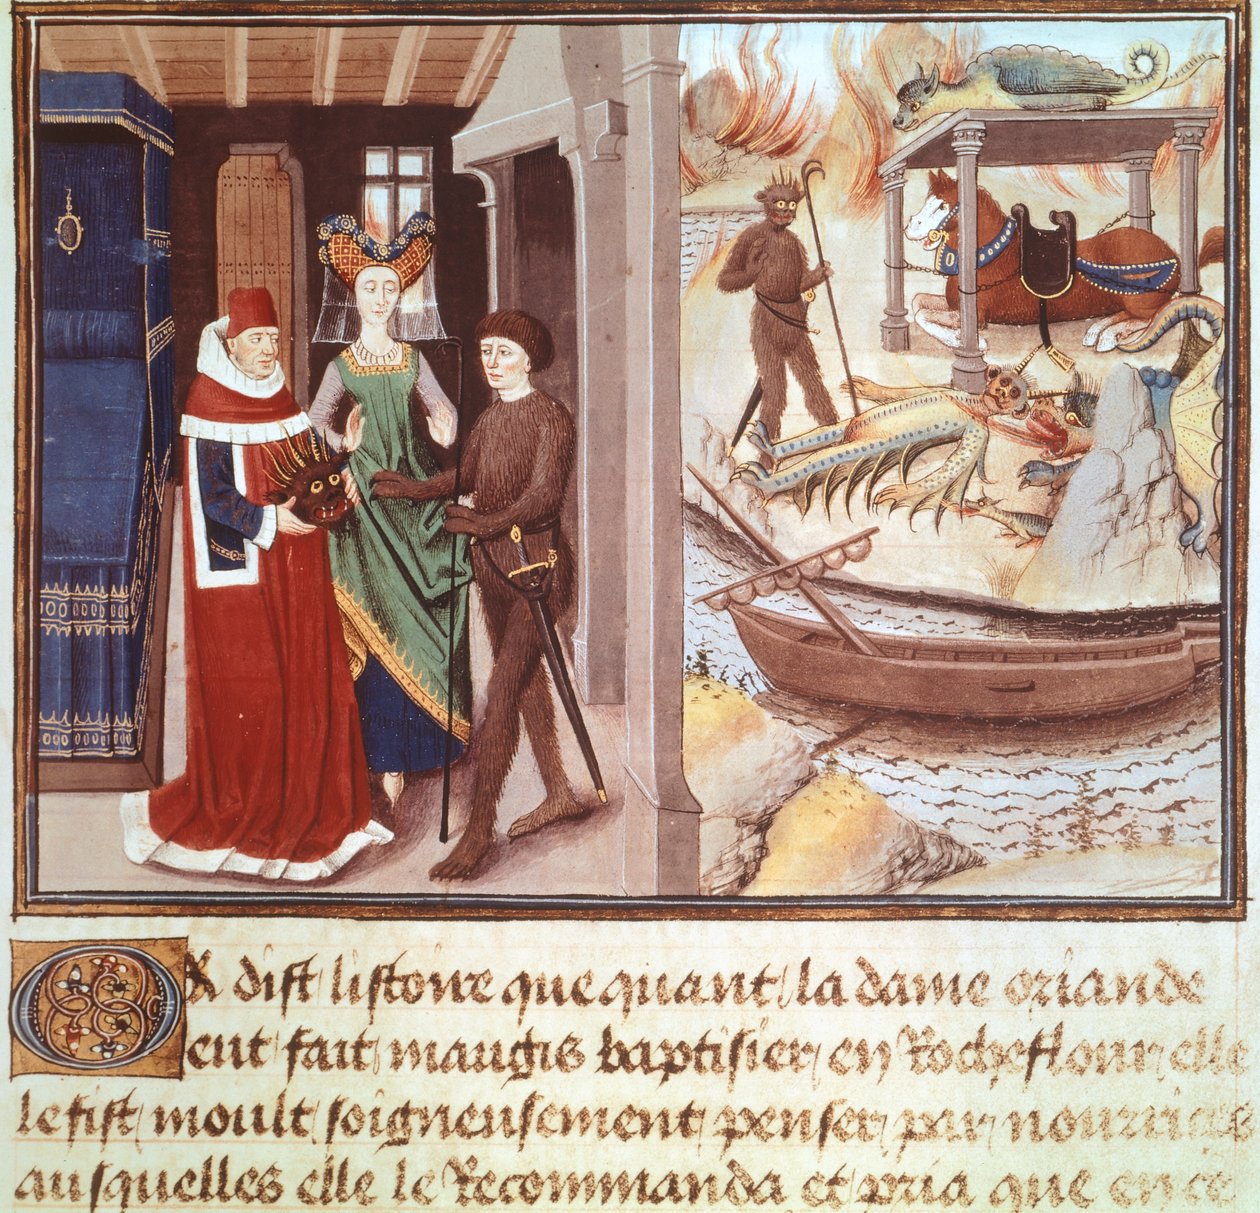 Or dist listoire que quant la dame oriande
eut fait maugis baptisier en Rocheflour elle
le fist moult soigneusement penser par nourrices
ausquelles elle le Recommanda et pria que en ce